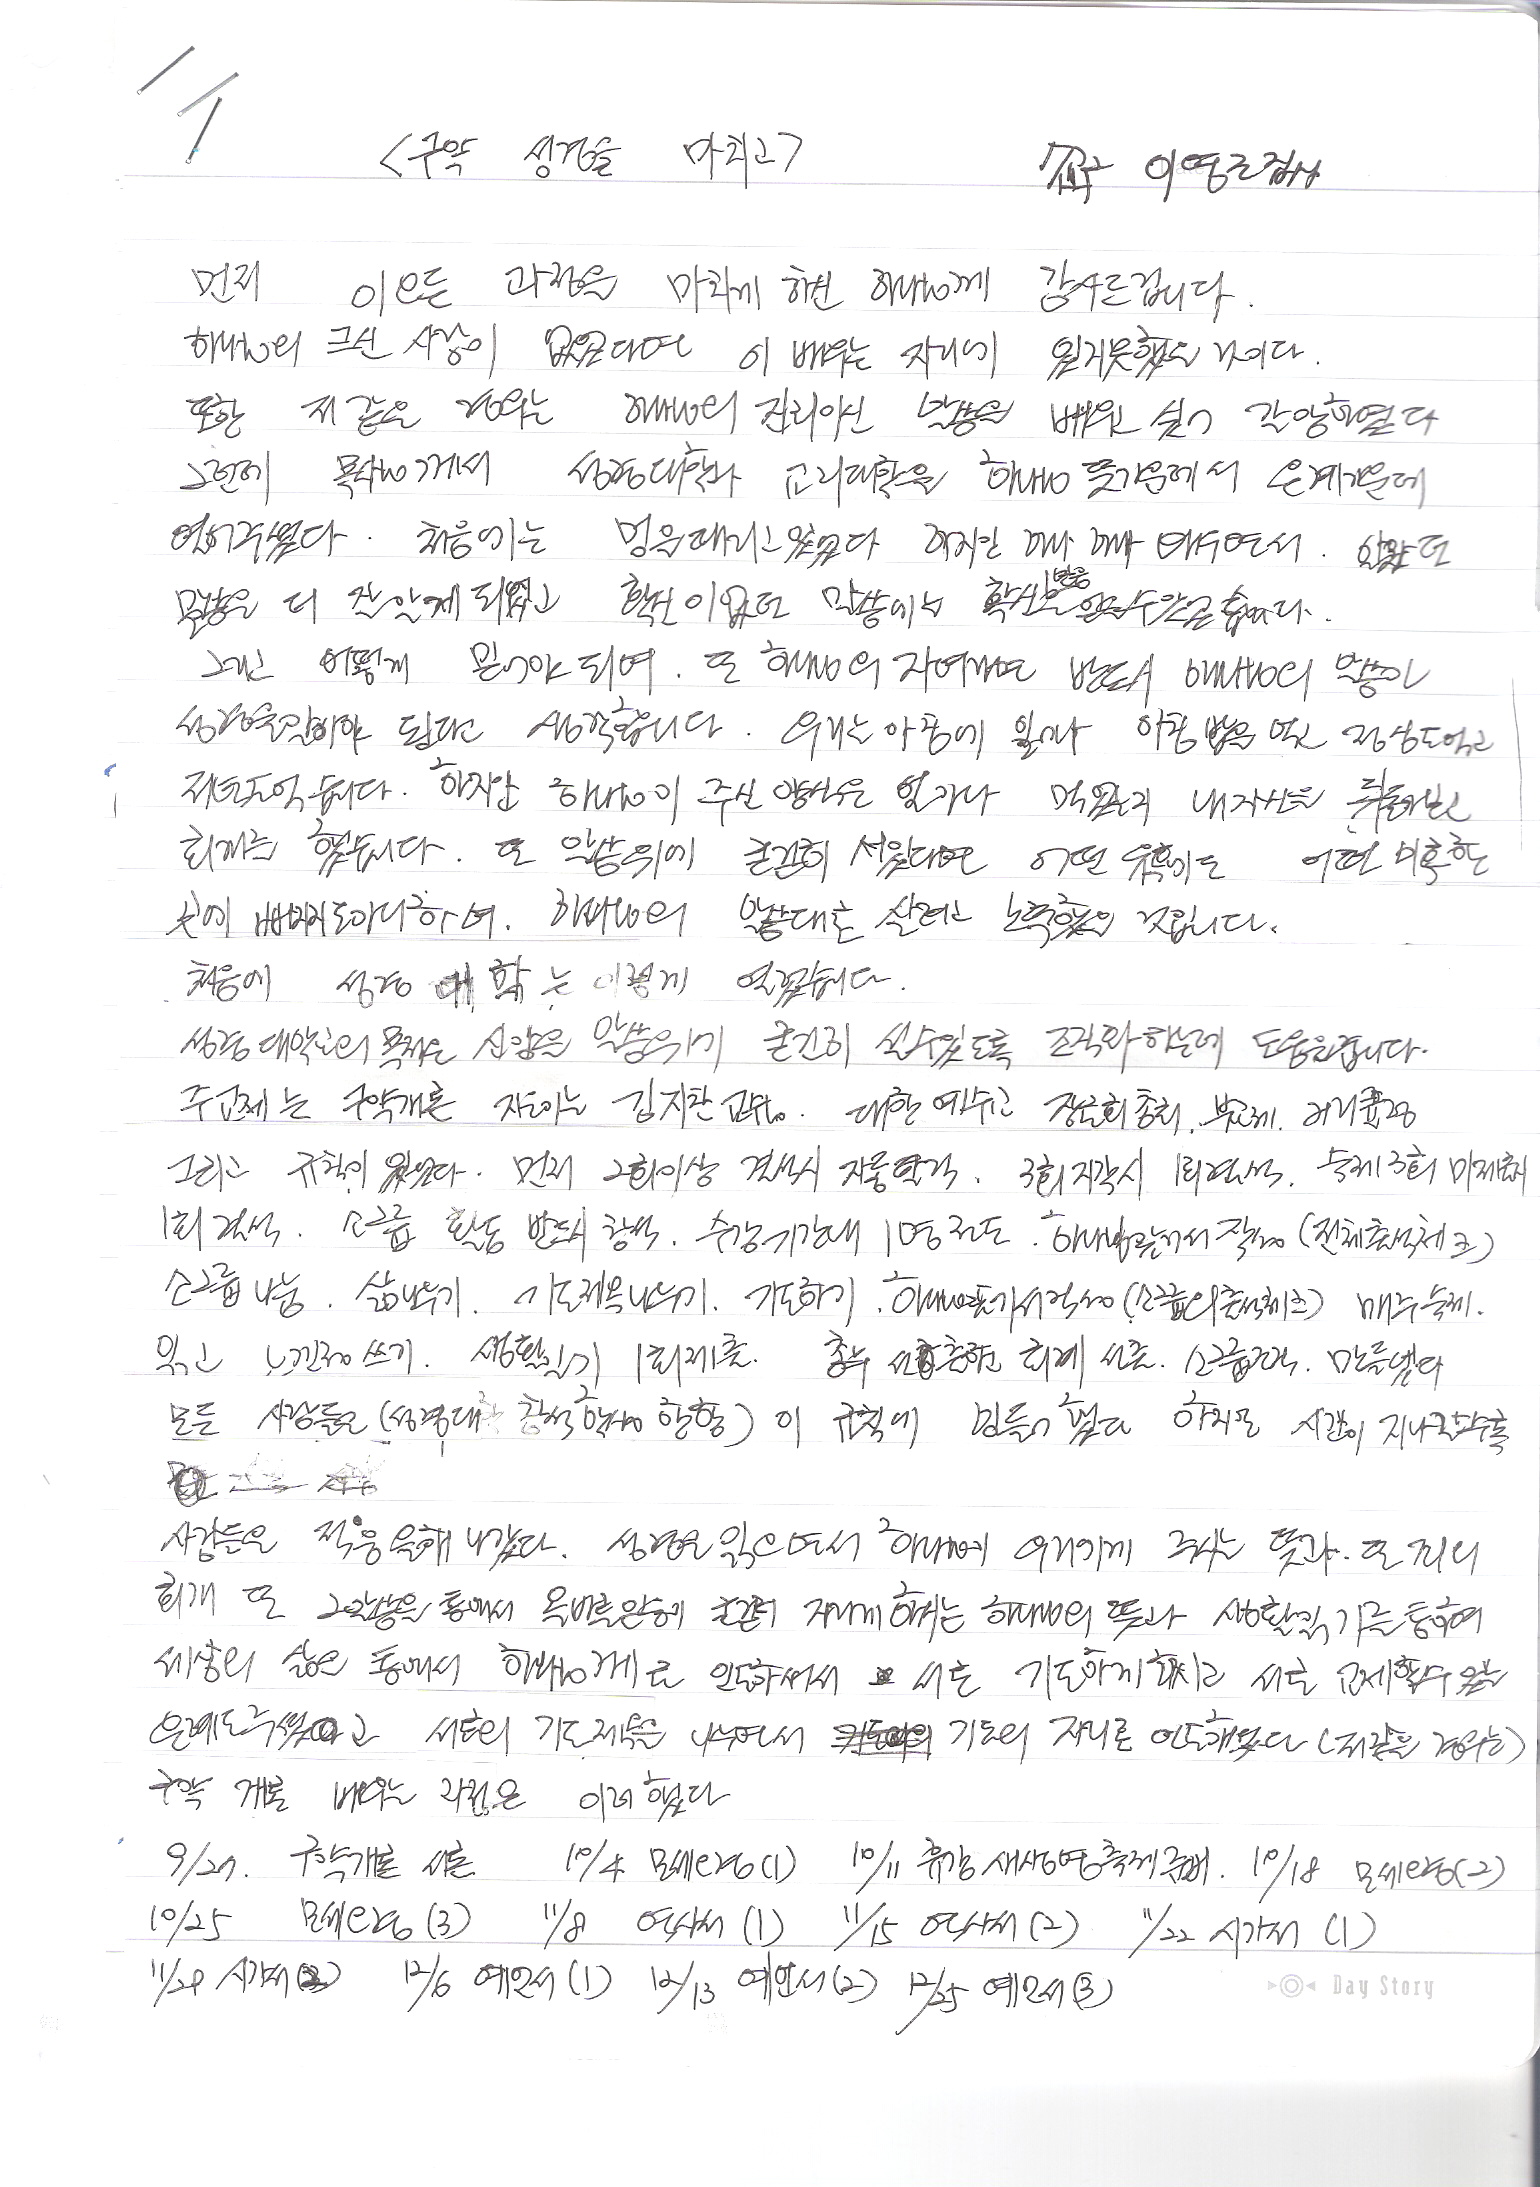 <구약 성경을 마치고> 이영근집사
먼저 이모든 과정을 마치게 하신 하나님께 감사드립니다.
하나님의 크신 사랑이 없었다면 이 배우는 자리에 있지못했을 것이다.
또한 저 같은 경우는 하나님의 진리이신 말씀을 배우고 싶어 갈망하였다
그런데 목사님께서 성경대학과 교리대학을 하나님 뜻가운데서 은혜가운데
열어주셨다. 처음에는 멍을때리고있었다 하지만 하나 하나 배우면서. 안았던
말씀은 더 잘 알게 되었고 확신이없던 말씀에서 확신을
그리고 어떻게 믿어야 되며. 또 하나님의 자녀라면 반드시 하나님의 말씀인
성경을읽어야 된다고 생각합니다. 우리는 아침에 일어나 아침 밥을 먹고 점심도먹고
저녁도먹습니다. 하지만 하나님이 주신 양식은 얼마나 먹었는지 내자신을 뒤돌아보고
회개를 했습니다. 또 말씀위에 굳건히 서있다면 어떤 유혹이든 어떤 미혹하는
것에 빠지지도아니하며. 하나님의 말씀대로 살려고 노력했을 것입니다.
처음에 성경 대학는 이렇게 열렸습니다.
성경대학교의 목적은 신앙을 말씀위에 굳건히 설수있도록 조직화하는데 도움을줍니다.
주교제는 구약개론 지은이는 김지찬 교수님. 대한 예수교 장로회총회. 부교제.
그리고 규칙이 있었다. 먼저 2회이상 결석시 자동탈락. 3회지각시 1회결석. 숙제3회 미제출시
1회 결석. 소그룹 활동 반드시 참석. 수강기간내 1명전도. 작성(전체출석체크)
소그룹나눔. 삶나누기. 기도제목나누기. 기도하기. (소그룹의출석체크) 매주숙제.
읽고 느낀점쓰기. 생활일기 1회제출. 총무 회계 선출. 소그룹조직. 만들었다
모든 사람들은(성경대학 참석) 이 규칙에 힘들어 했다 하지만 시간이 지나갈수록
사람들은 적응을해 나갔다. 성경을 읽으면서 하나님께 우리에게 주시는 뜻과. 또 죄의
회개 또 그말씀을 통해서 올바른말씀에 굳건히 자라게하시는 하나님의 뜻과 생활일기를 통하여
세상의 삶을 통해서 하나님께로 인도하셔서 서로 기도하게 하시고 서로 교제할수있는
은혜도주셨고 서로의 기도제목을 나누면서 기도의 자리로 인도해주셨다 (저같은 경우는)
구약 개론 배우는 과정은 이러했다
9/27. 구약개론 서론 10/4 모세오경(1) 10/11 휴강 새생명축제준비. 10/18 모세오경(2)
10/25 모세오경(3) 11/8 역사서(1) 11/15 역사서(2) 11/22 시가서(1)
11/29 시가서(2) 12/6 예언서(1) 12/13 예언서(2) 12/25 예언서(3)
Day Story